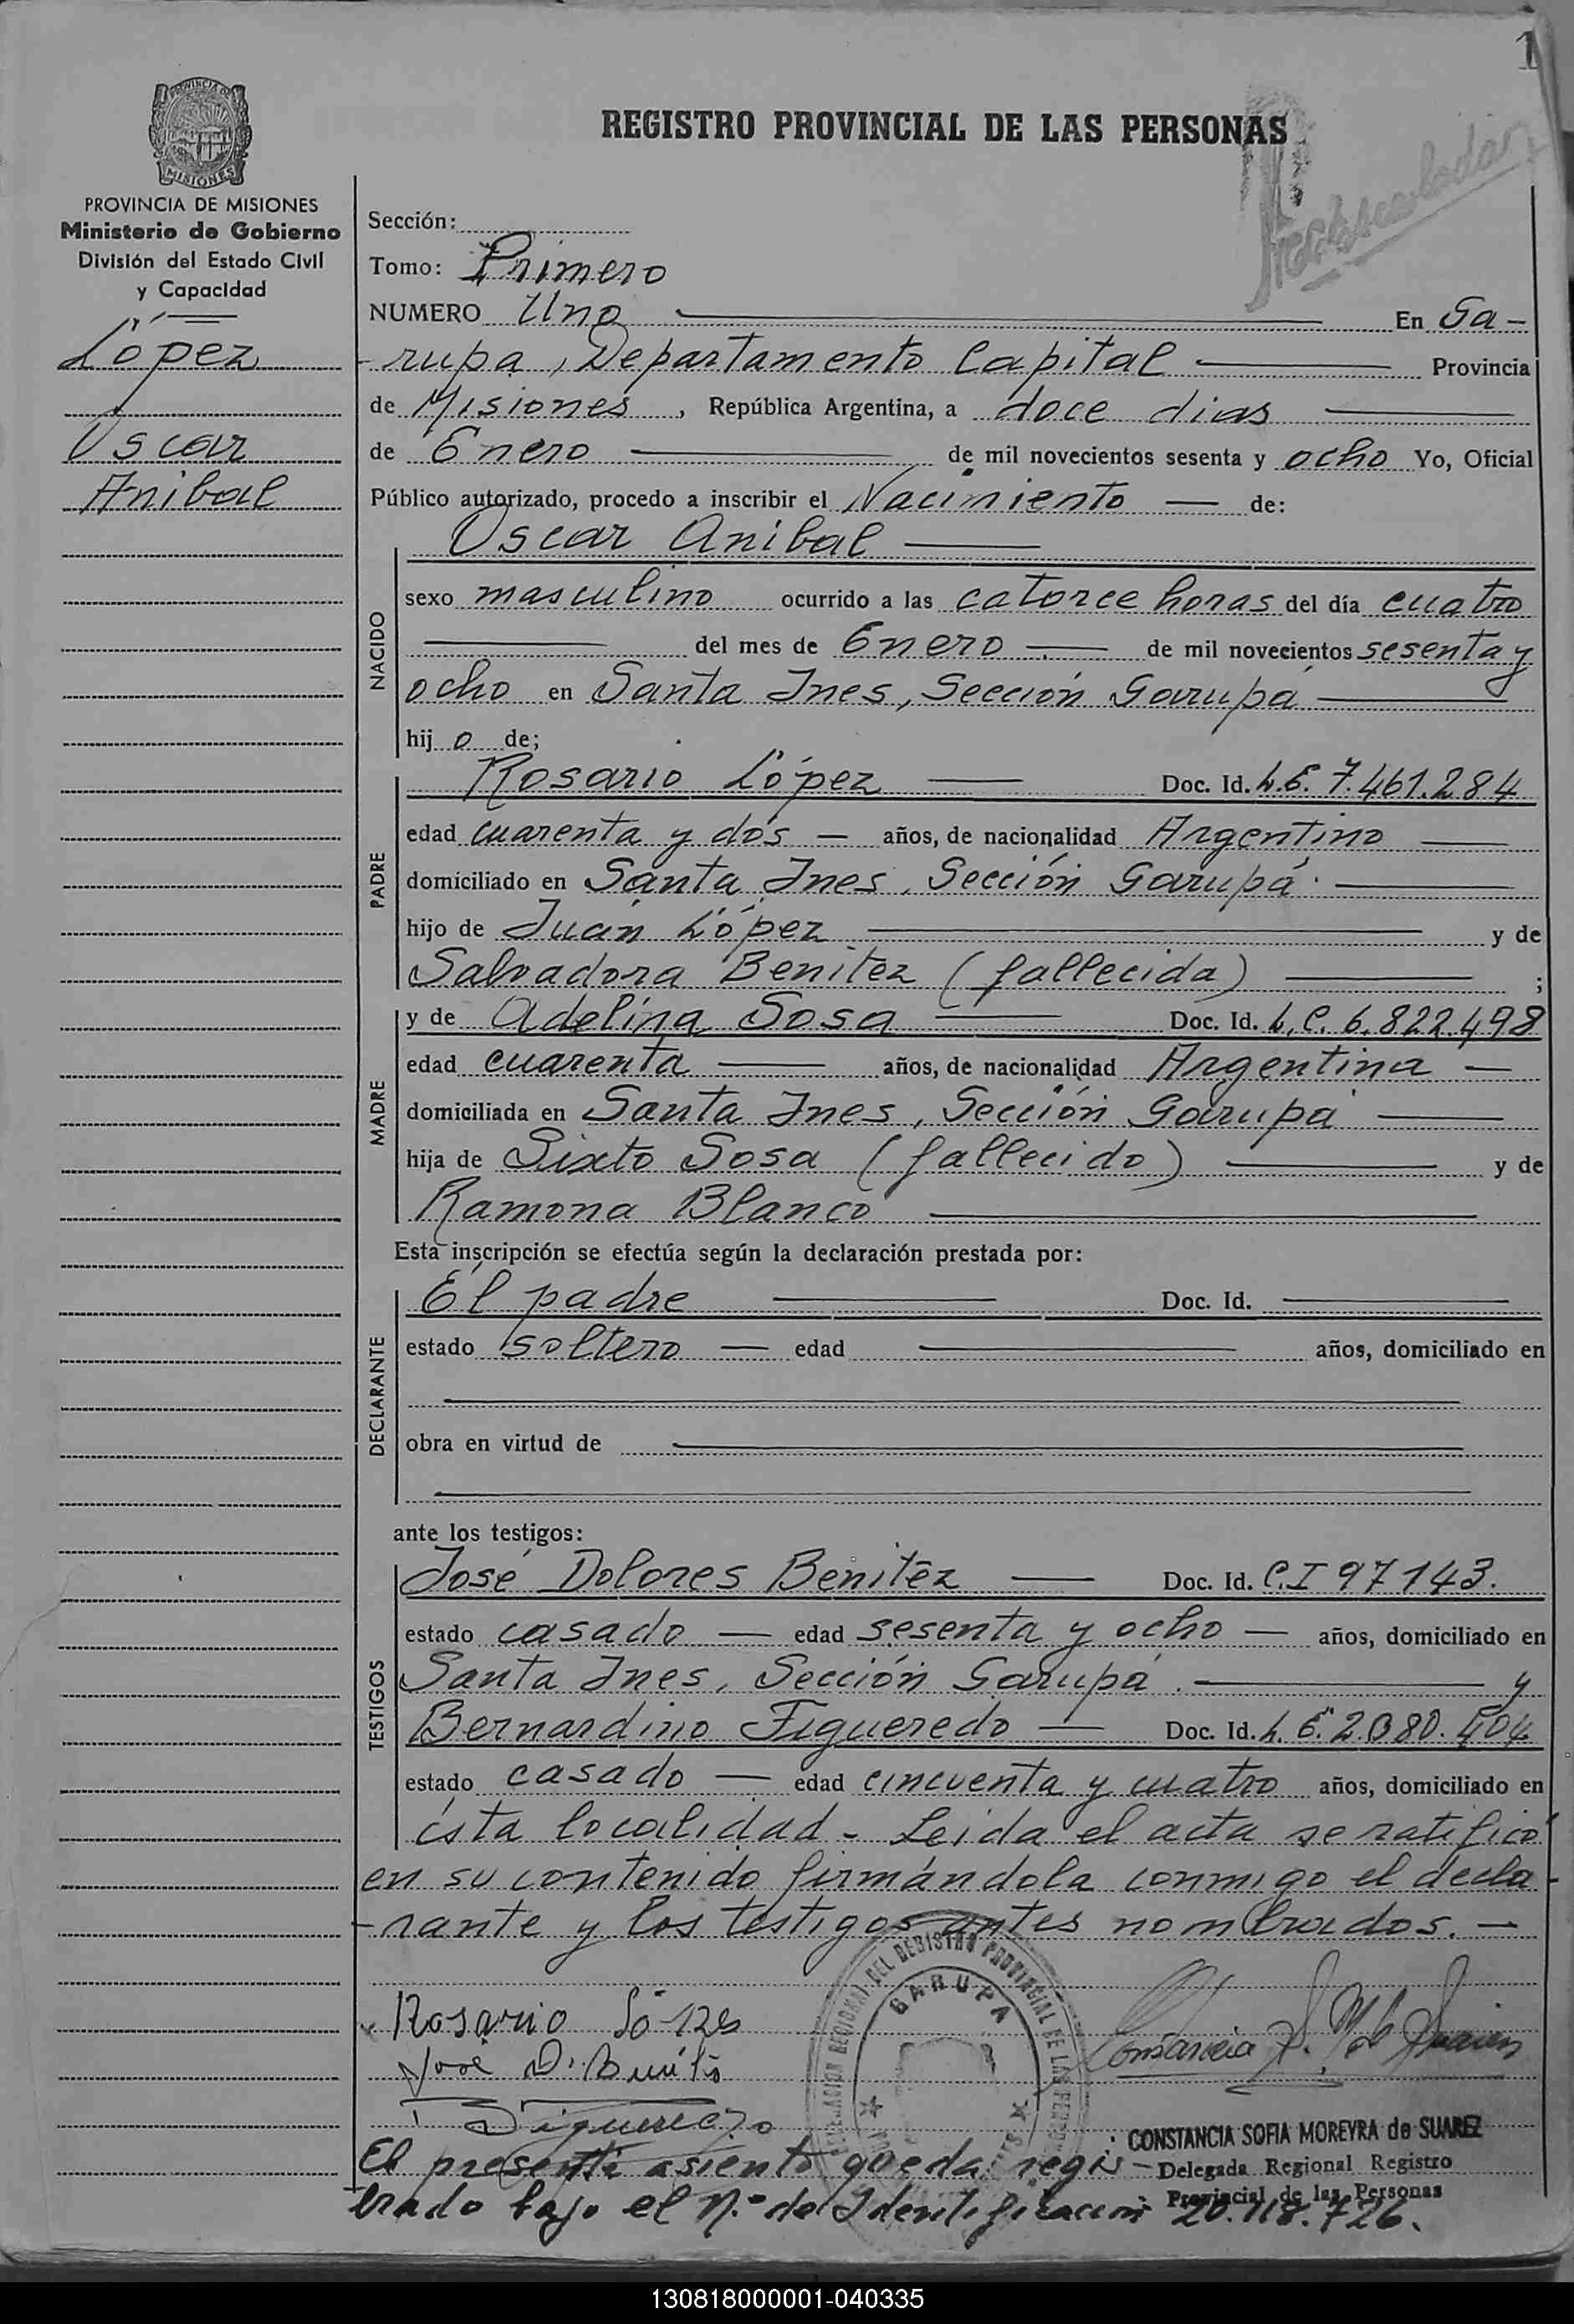 1
PROVINCIA DE
MISIONES
REGISTRO PROVINCIAL DE LAS PERSONAS
PROVINCIA DE MISIONES
Ministerio de Gobierno
División del Estado Civil
y Capacidad
López
Oscar
Anibal
Sección:
Tomo: Primero
NUMERO Uno En Ga-
-rupa, Departamento Capital Provincia
de Misiones, República Argentina, a doce dias
de Enero de mil novecientos sesenta y ocho Yo, Oficial
Público autorizado, procedo a inscribir el Nacimiento — de:
Oscar Anibal
NACIDO
sexo masculino ocurrido a las catorce horas del día cuatro
del mes de Enero de mil novecientos sesenta y
ocho en Santa Ines, Sección Garupá
hijo de;
PADRE
Rosario López Doc. Id. L.E. 7.461.284
edad cuarenta y dos — años, de nacionalidad Argentino
domiciliado en Santa Ines, Sección Garupá.
hijo de Juan López y de
Salvadora Benitez (fallecida) ;
MADRE
y de Adelina Sosa Doc. Id. L.C. 6.822.498
edad cuarenta años, de nacionalidad Argentina —
domiciliada en Santa Ines, Sección Garupá
hija de Sixto Sosa (fallecido) y de
Ramona Blanco
Esta inscripción se efectúa según la declaración prestada por:
DECLARANTE
El padre Doc. Id.
estado soltero — edad años, domiciliado en
obra en virtud de
ante los testigos:
TESTIGOS
José Dolores Benitez Doc. Id. C.I 97143.
estado casado — edad sesenta y ocho — años, domiciliado en
Santa Ines, Sección Garupá. y
Bernardino Figueredo — Doc. Id. L.E. 2.080.404
estado casado — edad cincuenta y cuatro años, domiciliado en
ésta localidad - Leida el acta se ratificó
en su contenido firmándola conmigo el decla-
-rante y los testigos antes nombrados. —
DELEGACION REGIONAL DEL REGISTRO PROVINCIAL DE LAS PERSONAS
GARUPA
Rosario
José D. Benites
Figueredo
CONSTANCIA SOFIA MOREYRA de SUAREZ
Delegada Regional Registro
Provincial de las Personas
El presente asiento queda regis-
trado bajo el N.º de Identificacion 20.118.726.
130818000001-040335